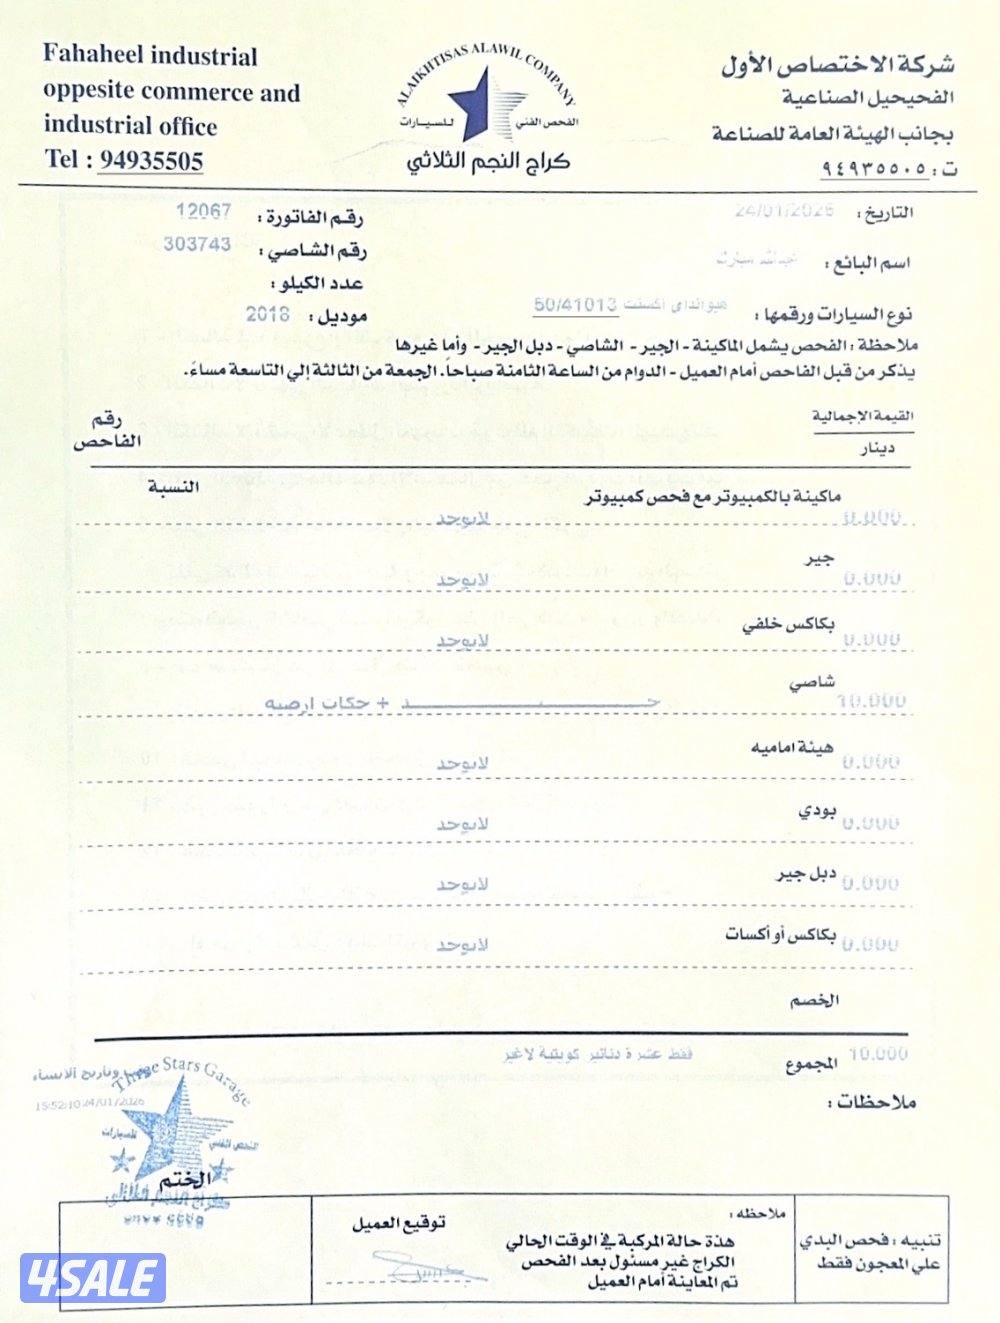 Fahaheel industrial
oppesite commerce and
industrial office
Tel : 94935505
ALAIKHTISAS ALAWIL COMPANY
الفحص الفني للسيارات
كراج النجم الثلاثي
شركة الاختصاص الأول
الفحيحيل الصناعية
بجانب الهيئة العامة للصناعة
ت : ٩٤٩٣٥٥٠٥
التاريخ : 24/01/2026
رقم الفاتورة : 12067
رقم الشاصي : 303743
اسم البائع : مبارك
عدد الكيلو :
نوع السيارات ورقمها : هيونداي أكسنت 50/41013
موديل : 2018
ملاحظة : الفحص يشمل الماكينة - الجير - الشاصي - دبل الجير - وأما غيرها
يذكر من قبل الفاحص أمام العميل - الدوام من الساعة الثامنة صباحاً. الجمعة من الثالثة إلي التاسعة مساءً.
القيمة الإجمالية
دينار
رقم
الفاحص
ماكينة بالكمبيوتر مع فحص كمبيوتر
النسبة
0.000 لايوجد
جير
0.000 لايوجد
بكاكس خلفي
0.000 لايوجد
شاصي
10.000 جـــــيـــــد + حكات ارضيه
هيئة اماميه
0.000 لايوجد
بودي
0.000 لايوجد
دبل جير
0.000 لايوجد
بكاكس أو أكسات
0.000 لايوجد
الخصم
المجموع
10.000 فقط عشرة دنانير كويتية لاغير
ملاحظات :
وتاريخ الانشاء
15:52:10 24/01/2026
Three Stars Garage
الفحص الفني للسيارات
الختم
تنبيه : فحص البدي
علي المعجون فقط
ملاحظه :
هذة حالة المركبة في الوقت الحالي
الكراج غير مسئول بعد الفحص
تم المعاينة أمام العميل
توقيع العميل
4SALE